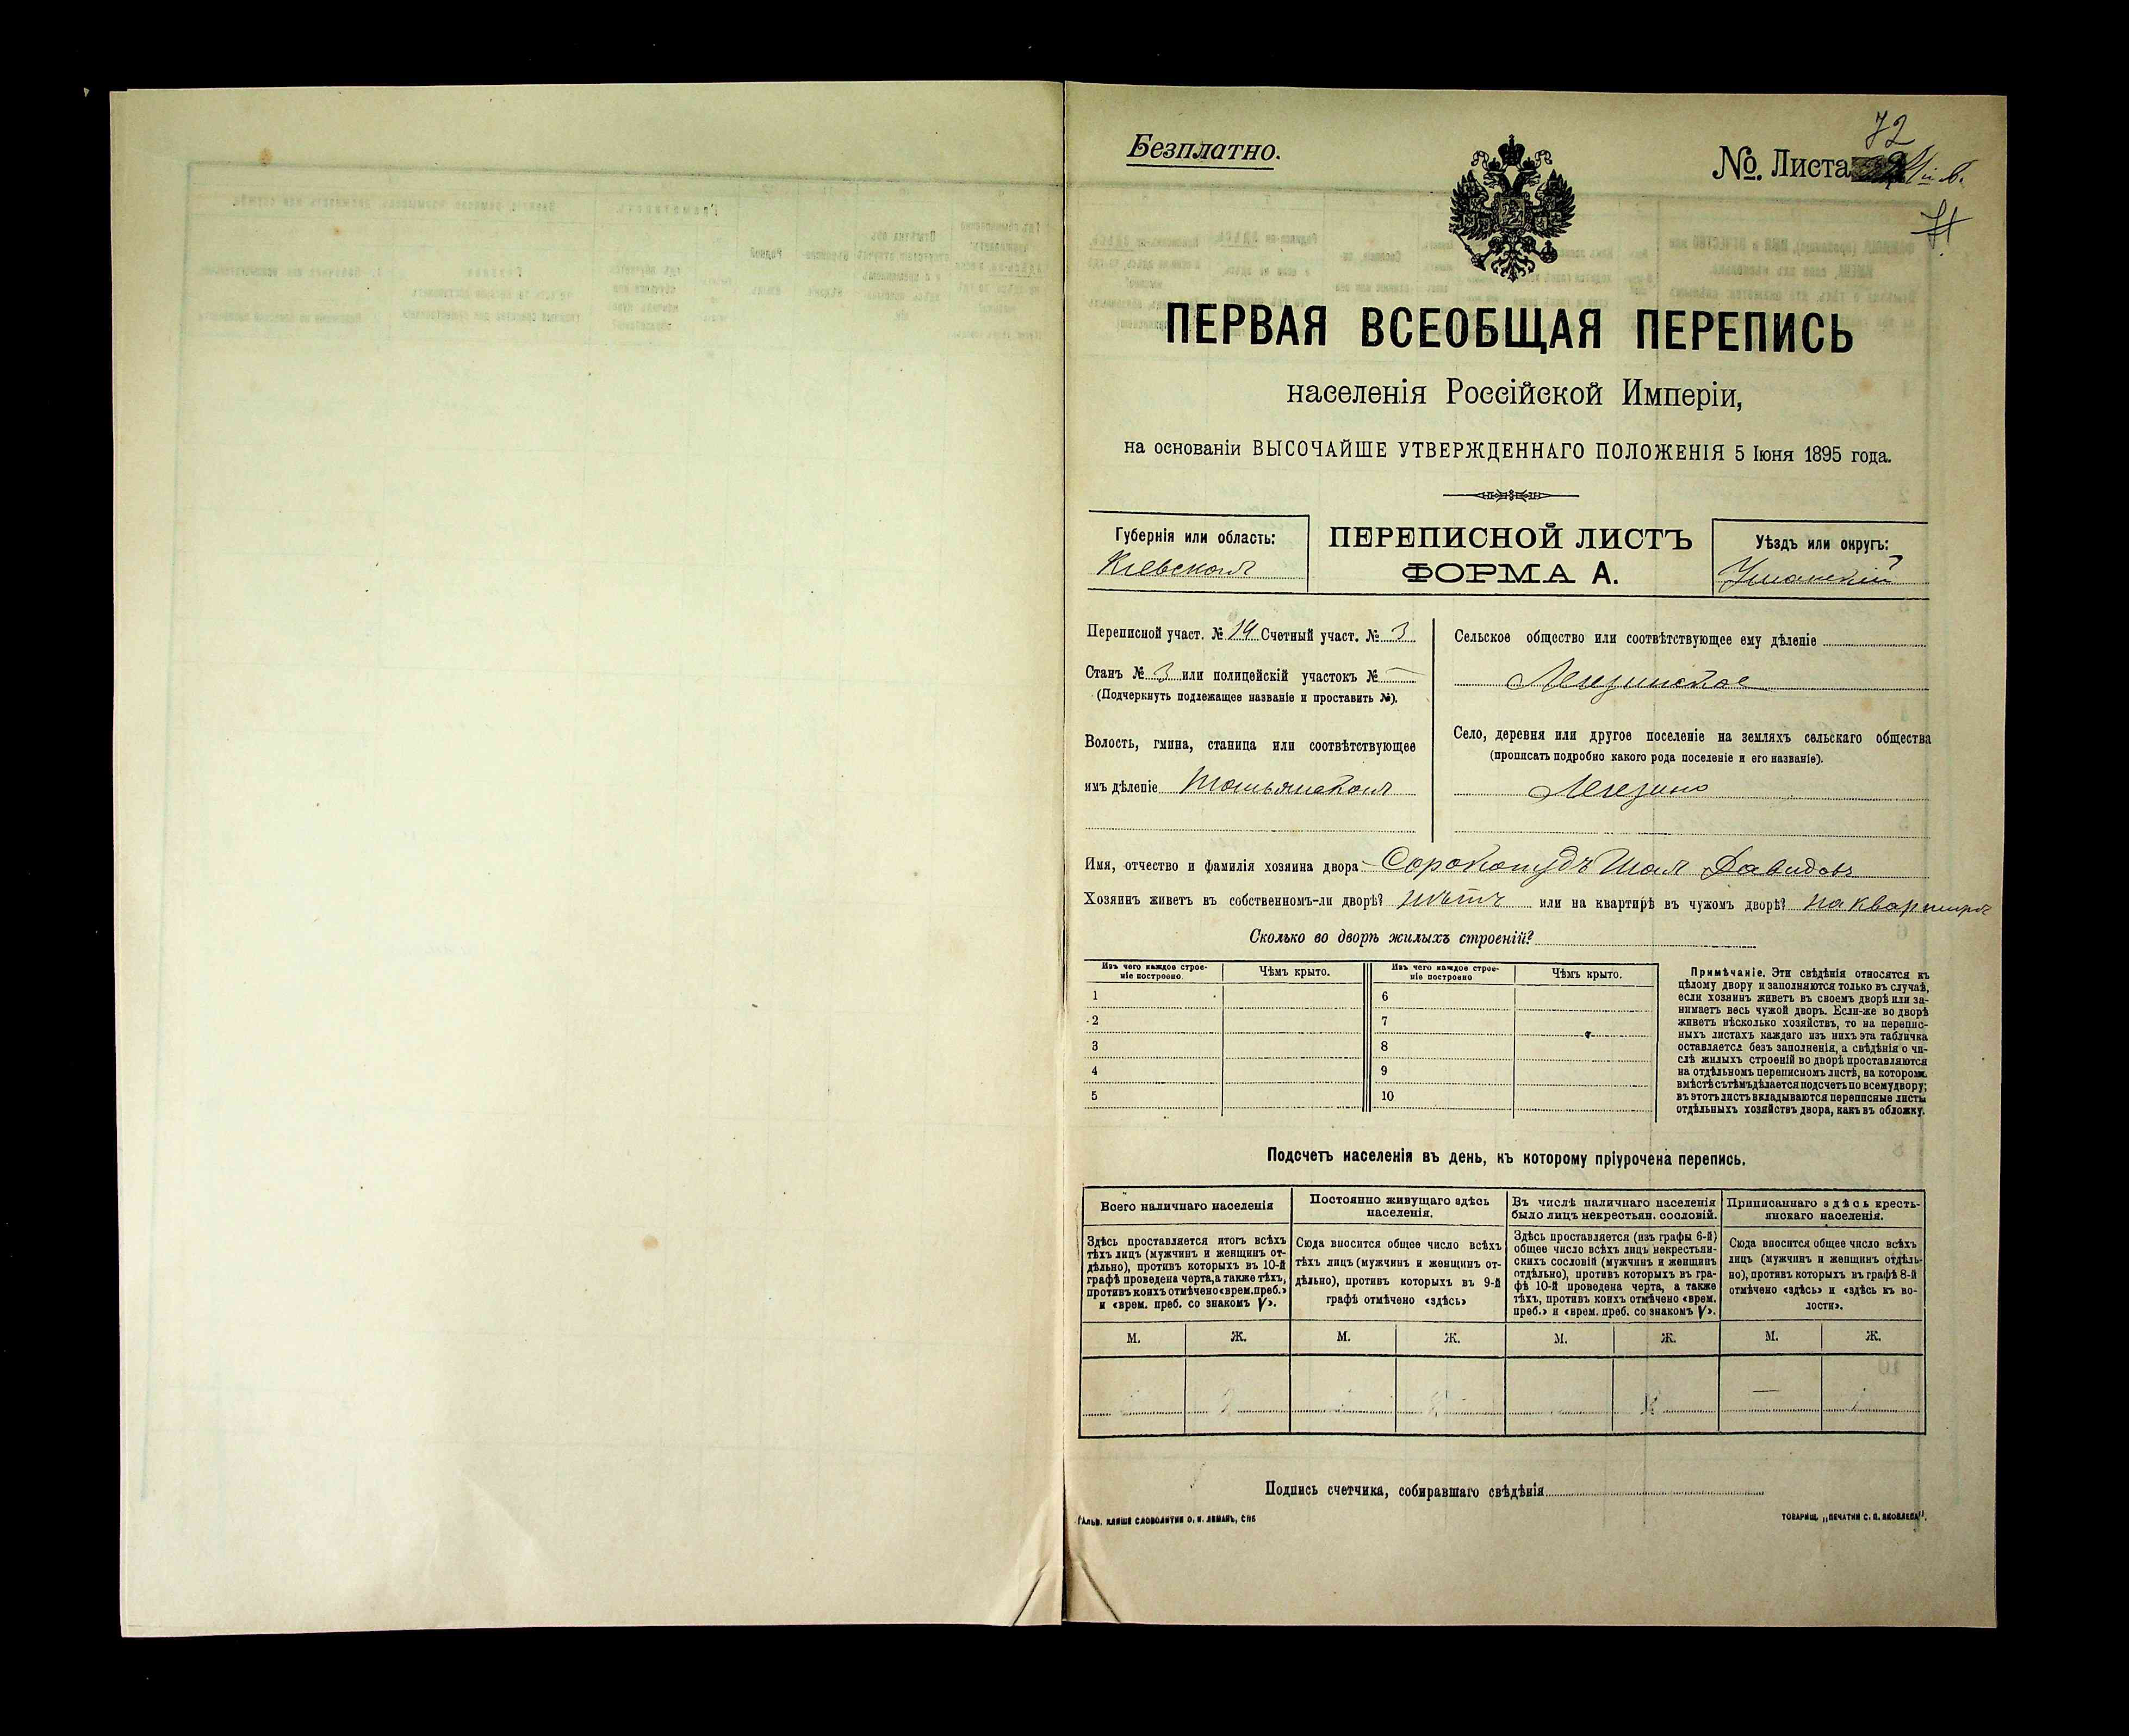 Безплатно.
72
№ Листа
ПЕРВАЯ ВСЕОБЩАЯ ПЕРЕПИСЬ
населенія Россійской Имперіи,
на основаніи ВЫСОЧАЙШЕ УТВЕРЖДЕННАГО ПОЛОЖЕНІЯ 5 Іюня 1895 года.
Губернія или область:
Кіевская
ПЕРЕПИСНОЙ ЛИСТЪ
ФОРМА А.
Уѣздъ или округъ:
Уманскій
Переписной участ. № 14 Счетный участ. № 3
Станъ № 3 или полицейскій участокъ № —
(Подчеркнуть подлежащее названіе и проставить №).
Волость, гмина, станица или соотвѣтствующее
имъ дѣленіе
Сельское общество или соотвѣтствующее ему дѣленіе
Легезинское
Село, деревня или другое поселеніе на земляхъ сельскаго общества
(прописать подробно какого рода поселеніе и его названіе).
Легезино
Имя, отчество и фамилія хозяина двора Сорокопудъ Шая Давидовъ
Хозяинъ живетъ въ собственномъ-ли дворѣ? нѣтъ или на квартирѣ въ чужомъ дворѣ? на квартирѣ
Сколько во дворѣ жилыхъ строеній?
Изъ чего каждое строе-
ніе построено.
Чѣмъ крыто.
Изъ чего каждое строе-
ніе построено
Чѣмъ крыто.
1 6
2 7
3 8
4 9
5 10
Примѣчаніе. Эти свѣдѣнія относятся къ
цѣлому двору и заполняются только въ случаѣ,
если хозяинъ живетъ въ своемъ дворѣ или за-
нимаетъ весь чужой дворъ. Если-же во дворѣ
живетъ нѣсколько хозяйствъ, то на перепис-
ныхъ листахъ каждаго изъ нихъ эта табличка
оставляется безъ заполненія, а свѣдѣнія о чи-
слѣ жилыхъ строеній во дворѣ проставляются
на отдѣльномъ переписномъ листѣ, на которомъ
вмѣстѣ съ тѣмъ дѣлается подсчетъ по всему двору;
въ этотъ листъ вкладываются переписные листы
отдѣльныхъ хозяйствъ двора, какъ въ обложку.
Подсчетъ населенія въ день, къ которому пріурочена перепись.
Всего наличнаго населенія
Здѣсь проставляется итогъ всѣхъ
тѣхъ лицъ (мужчинъ и женщинъ от-
дѣльно), противъ которыхъ въ 10-й
графѣ проведена черта, а также тѣхъ,
противъ коихъ отмѣчено «врем. преб.»
и «врем. преб. со знакомъ V».
Постоянно живущаго здѣсь
населенія.
Сюда вносится общее число всѣхъ
тѣхъ лицъ (мужчинъ и женщинъ от-
дѣльно), противъ которыхъ въ 9-й
графѣ отмѣчено «здѣсь»
Въ числѣ наличнаго населенія
было лицъ некрестьян. сословій.
Здѣсь проставляется (изъ графы 6-й)
общее число всѣхъ лицъ некрестьян-
скихъ сословій (мужчинъ и женщинъ
отдѣльно), противъ которыхъ въ гра-
фѣ 10-й проведена черта, а также
тѣхъ, противъ коихъ отмѣчено «врем.
преб.» и «врем. преб. со знакомъ V».
Приписаннаго здѣсь кресть-
янскаго населенія.
Сюда вносится общее число всѣхъ
лицъ (мужчинъ и женщинъ отдѣль-
но), противъ которыхъ въ графѣ 8-й
отмѣчено «здѣсь» и «здѣсь къ во-
лости».
М. Ж. М. Ж. М. Ж. М. Ж.
Подпись счетчика, собиравшаго свѣдѣнія
Гальв. клише словолитни О. И. Леманъ, СПБ
Товарищ. „Печатня С. П. Яковлева".